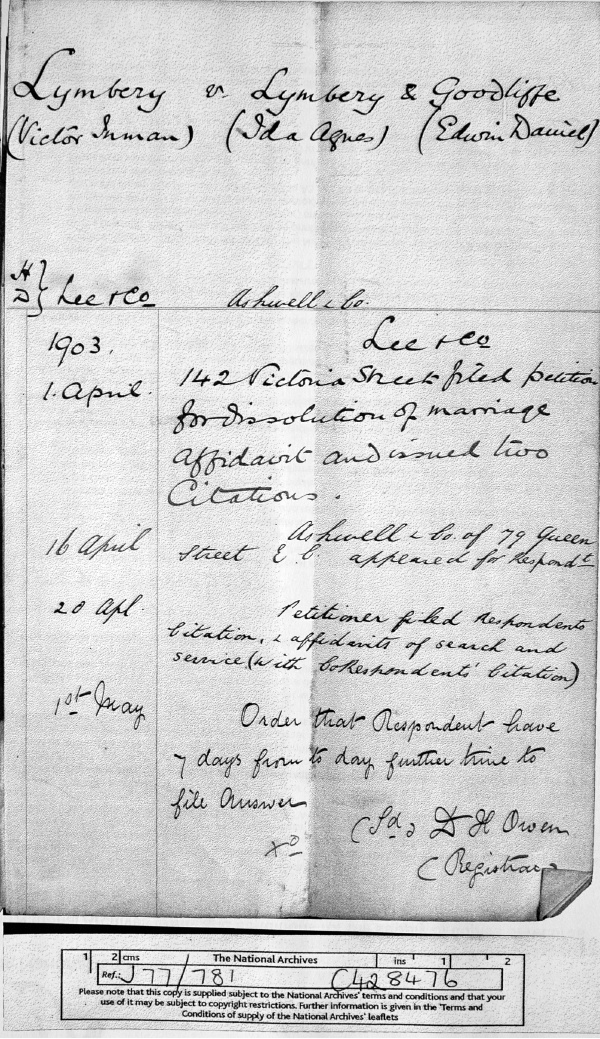 Lymbery v. Lymbery & Goodliffe
(Victor Inman) (Ida Agnes) (Edwin Daniel)
H
D } Lee & Co Ashwell & Co.
1903. Lee & Co
1. April. 142 Victoria Street filed petition
for dissolution of marriage
affidavit and issued two
Citations.
16 April Ashwell & Co. of 79 Queen
Street E C. appeared for Respondt
20 Apl. Petitioner filed Respondents
Citation, & affidavits of search and
service (with CoRespondents' Citation)
1st May Order that Respondent have
7 days from to day further time to
file Answer
(Sd) D H Owen
(Registrar
1 2 cms The National Archives ins 1 2
Ref.: J 77/781 C428476
Please note that this copy is supplied subject to the National Archives' terms and conditions and that your
use of it may be subject to copyright restrictions. Further information is given in the 'Terms and
Conditions of supply of the National Archives' leaflets